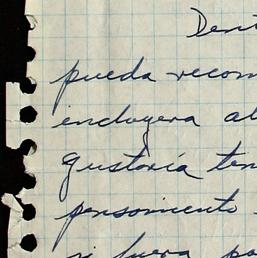 Dent
pueda recom
incluyera al
gustaría ten
pensamiento
si fuera po